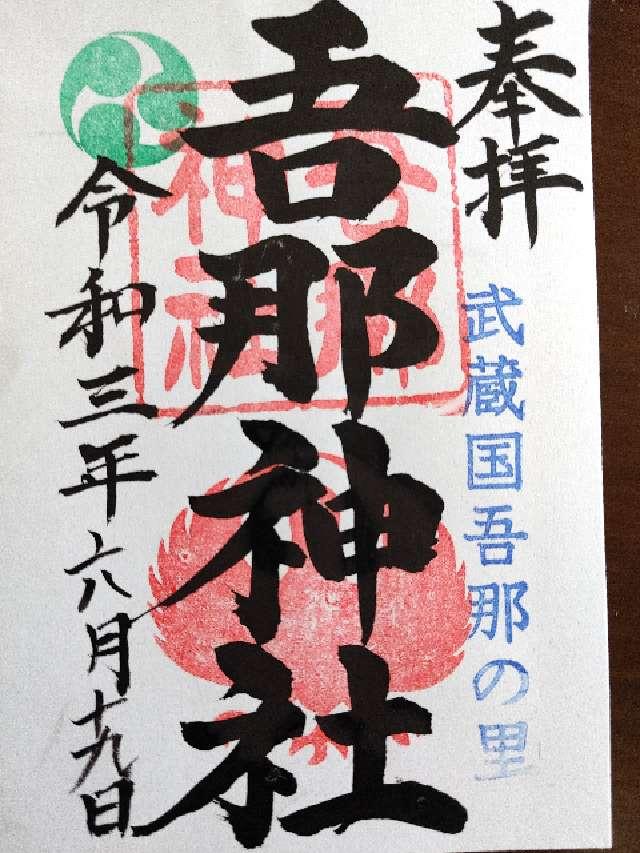 奉拝
武蔵国吾那の里
吾那神社
吾那神社
令和三年六月十九日